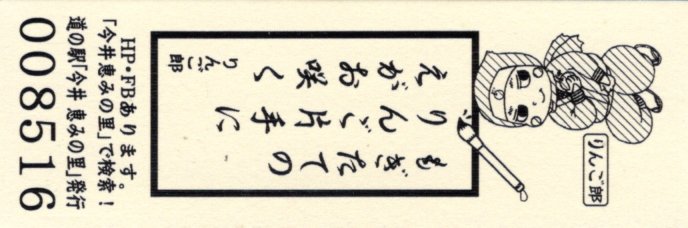 もぎたての
りんご片手に
えがお咲く
りんご郎
りんご郎
HP・FBあります。
「今井恵みの里」で検索!
道の駅「今井 恵みの里」発行
008516